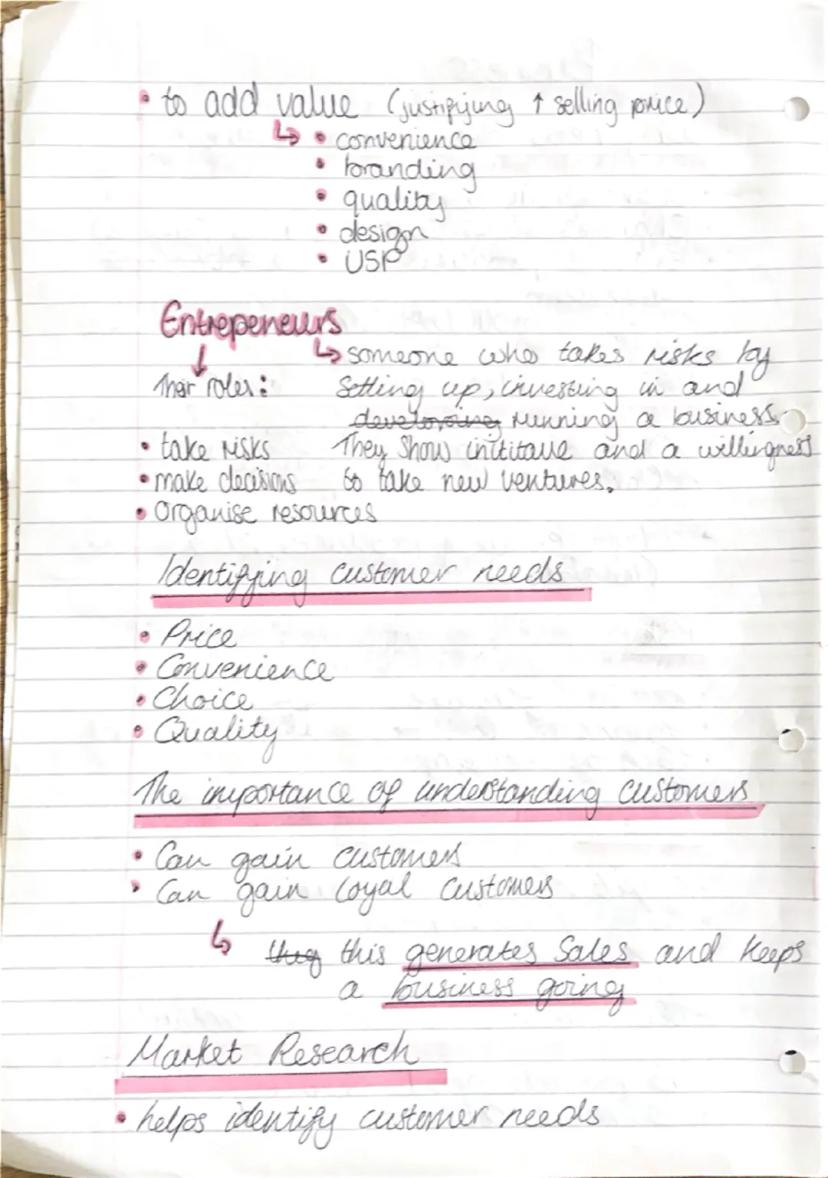 • to add value (justifying ↑ selling price)
↳ • convenience
• branding
• quality
• design
• USP
Entrepeneurs
↓ ↳ someone who takes risks by
Their roles: setting up, investing in and
developing running a business
• take risks They show inititave and a willingness
• make decisions to take new ventures.
• Organise resources
Identifying customer needs
• Price
• Convenience
• Choice
• Quality
The importance of understanding customers
• Can gain customers
• Can gain loyal customers
↳ they this generates sales and keeps
a business going
Market Research
• helps identify customer needs